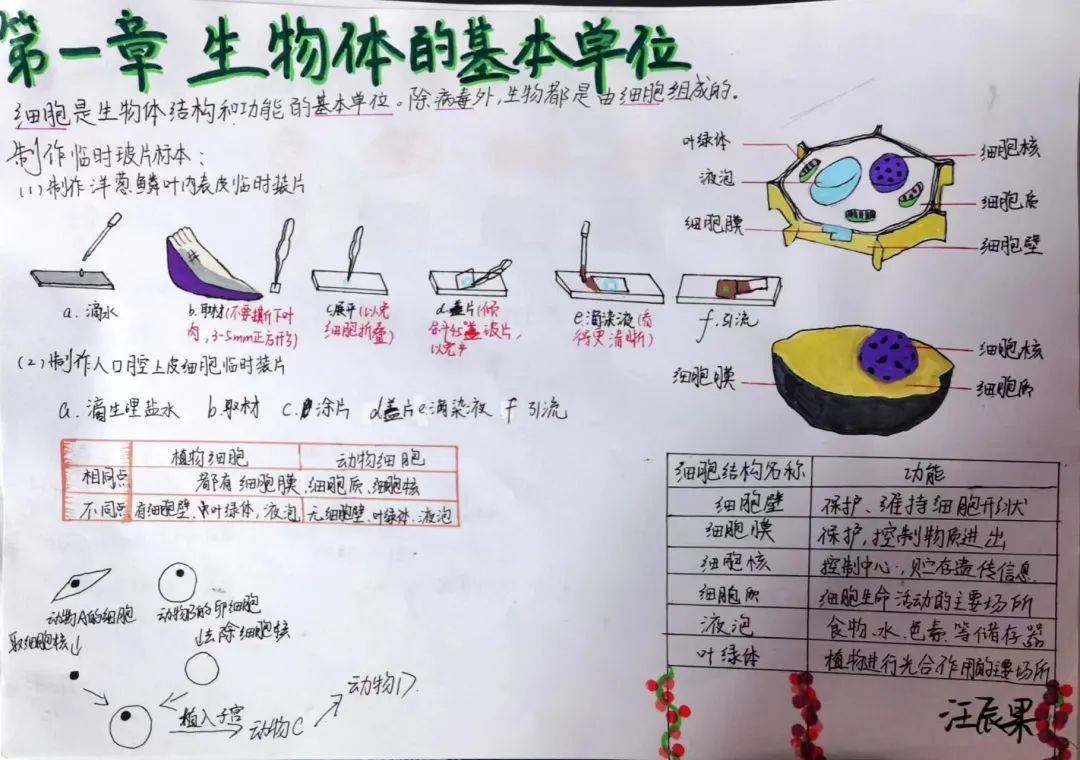 第一章 生物体的基本单位
细胞是生物体结构和功能的基本单位。除病毒外,生物都是由细胞组成的。
制作临时玻片标本:
(1)制作洋葱鳞叶内表皮临时装片
a. 滴水
b.取材(不要撕下叶
肉,3-5mm正方形)
c.展平(以免
细胞折叠)
d.盖片(倾
盖玻片,
以免
e.滴染液(看
得更清晰)
f.引流
(2)制作人口腔上皮细胞临时装片
a. 滴生理盐水 b.取材 c.涂片 d盖片 e.滴染液 f 引流
植物细胞 动物细胞
相同点 都有细胞膜、细胞质、细胞核
不同点 有细胞壁、叶绿体,液泡 无细胞壁、叶绿体、液泡
动物A的细胞 动物B的卵细胞
取细胞核 去除细胞核
植入子宫 动物C 动物D.
叶绿体
液泡
细胞膜
细胞核
细胞质
细胞壁
细胞膜
细胞核
细胞质
细胞结构名称 功能
细胞壁 保护、维持细胞形状
细胞膜 保护,控制物质进出
细胞核 控制中心,贮存遗传信息
细胞质 细胞生命活动的主要场所
液泡 食物、水、色素等储存器
叶绿体 植物进行光合作用的主要场所
汪辰果